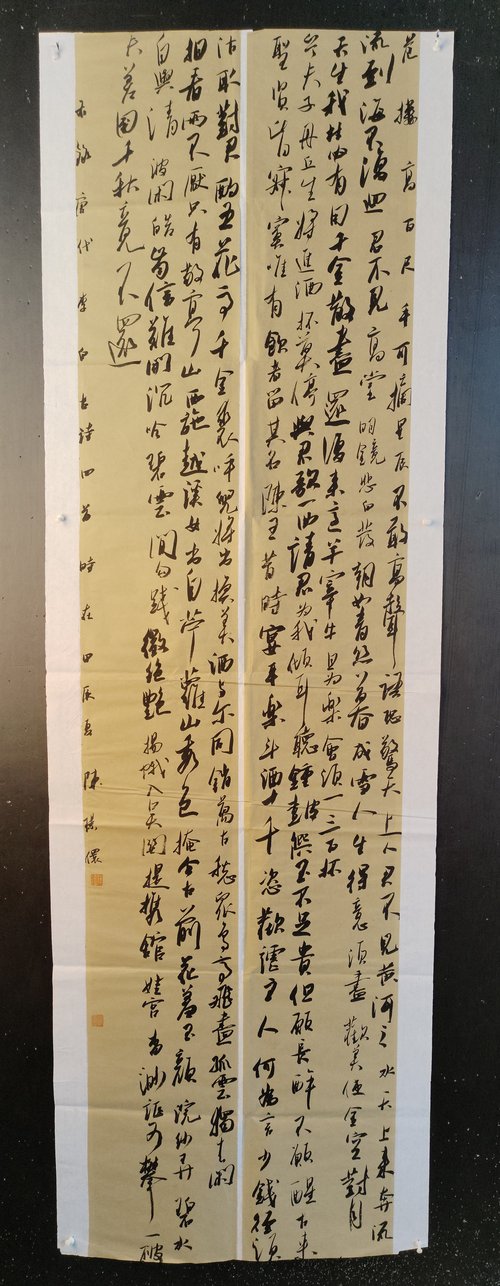 危樓高百尺手可摘星辰不敢高聲語恐驚天上人君不見黄河之水天上来奔流
流到海不復迴君不見高堂明鏡悲白发朝如青絲暮成雪人生得意須盡歡莫使金空對月
天生我材必有用千金散盡還復来烹羊宰牛且为樂會須一三百杯
岑夫子丹丘生將進酒杯莫停與君歌一曲請君为我傾耳聽鍾鼓饌玉不足貴但願長醉不願醒古来
聖賢皆寂寞唯有飲者留其名陳王昔時宴平樂斗酒十千恣歡謔主人何為言少錢徑須
沽取對君酌五花馬千金裘呼兒將出換美酒与尔同銷萬古愁眾鳥高飛盡孤雲獨去閑
相看兩不厭只有敬亭山西施越溪女出自苧蘿山秀色掩今古荷花羞玉顏浣紗弄碧水
自與清波閑皓齒信難開沉吟碧雲間勾踐徵絕艷揚蛾入吳關提攜館娃宮杳渺詎可攀一破
夫差國千秋竟不還
录唐代李白古詩四首時在甲辰夏陳